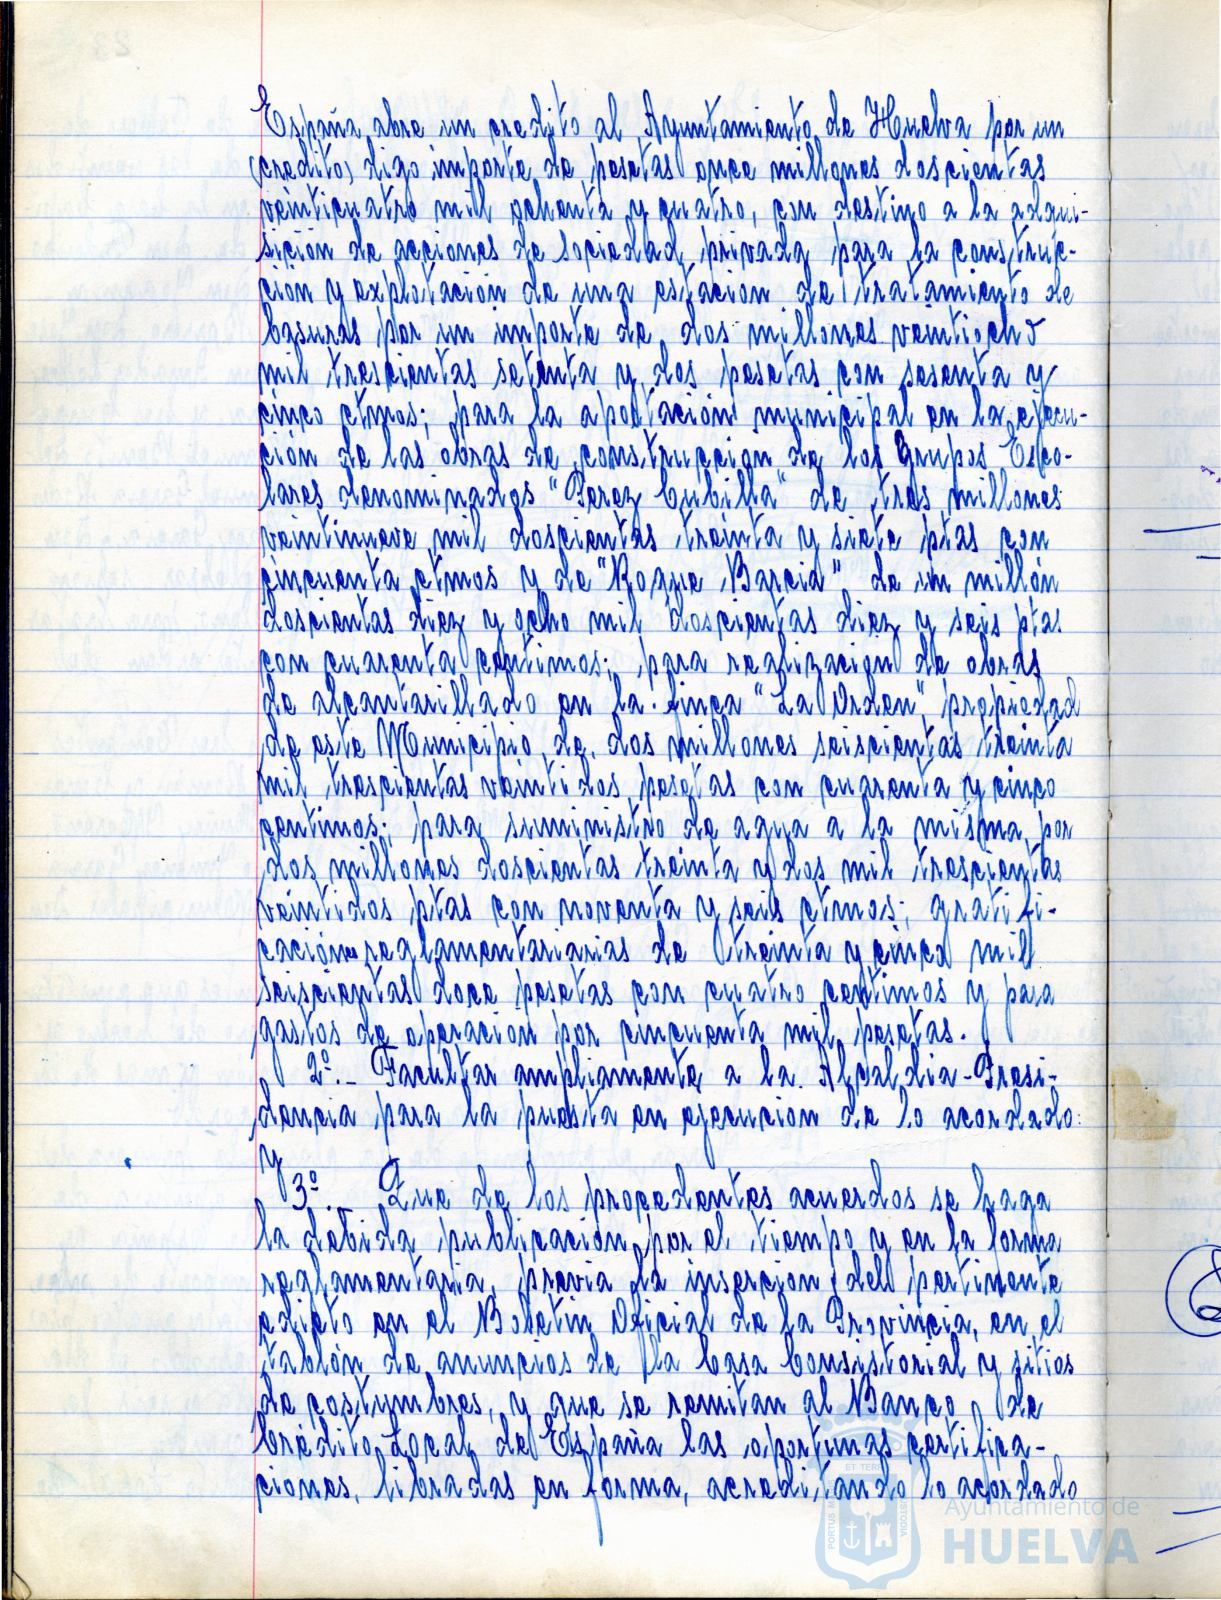 España, abre un credito al Ayuntamiento de Huelva por un
(crédito) digo importe de pesetas once millones doscientas
veinticuatro mil ochenta y cuatro, con destino a la adqui-
sición de acciones de Sociedad privada para la construc-
ción y explotación de una estación de tratamiento de
basuras por un importe de dos millones veintiocho
mil trescientas setenta y dos pesetas con sesenta y
cinco ctmos; para la aportación municipal en la ejecu-
ción de las obras de construcción de los Grupos Esco-
lares denominados "Perez Cubilla" de tres millones
veintinueve mil doscientas treinta y siete ptas con
cincuenta ctmos y de "Roque Barcia" de un millón
doscientas diez y ocho mil doscientas diez y seis ptas
con cuarenta centimos; para realización de obras
de alcantarillado en la finca "La Orden", propiedad
de este Municipio, de dos millones seiscientas treinta
mil trescientas veintidos pesetas con cuarenta y cinco
centimos; para suministro de agua a la misma, por
dos millones doscientas treinta y dos mil trescientas
veintidos ptas con noventa y seis ctmos; gratifi-
caciónes reglamentariarias de treinta y cinco mil
seiscientas doce pesetas con cuatro centimos y para
gastos de operación por cincuenta mil pesetas.
2º.- Facultar ampliamente a la Alcaldia-Presi-
dencia para la puesta en ejecución de lo acordado:
y
3º.- Que de los precedentes acuerdos se haga
la debida publicación por el tiempo y en la forma
reglamentaria, previa la inserción del pertinente
edicto en el Boletin Oficial de la Provincia, en el
tablón de anuncios de la Casa Consistorial y sitios
de costumbres, y que se remitan al Banco de
Crédito Local de España las oportunas certifica-
ciones, libradas en forma, acreditando lo acordado
Ayuntamiento de
HUELVA